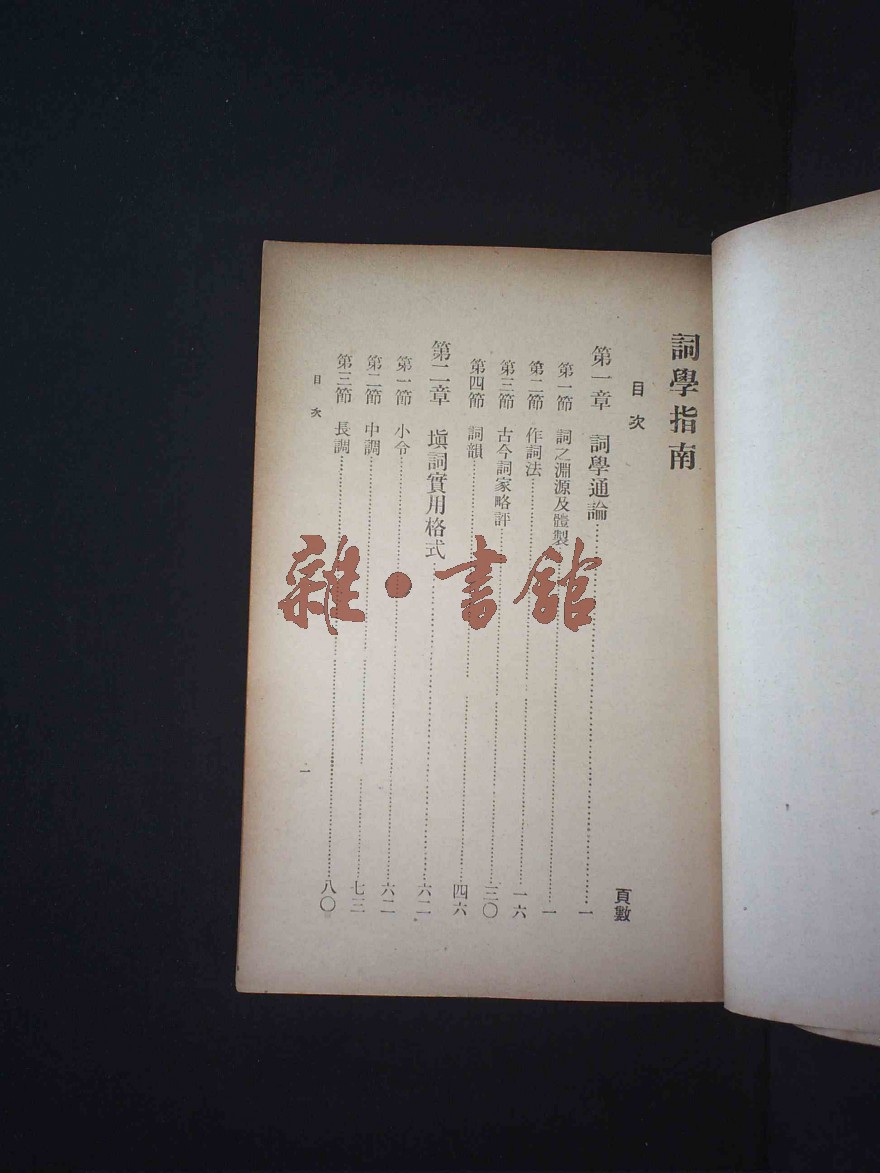 詞學指南
目次
頁數
第一章 詞學通論⋯⋯一
第一節 詞之淵源及體製⋯⋯一
第二節 作詞法⋯⋯一六
第三節 古今詞家略評⋯⋯三〇
第四節 詞韻⋯⋯四六
第二章 塡詞實用格式⋯⋯六二
第一節 小令⋯⋯六二
第二節 中調⋯⋯七三
第三節 長調⋯⋯八〇
目次
一
雜·書館